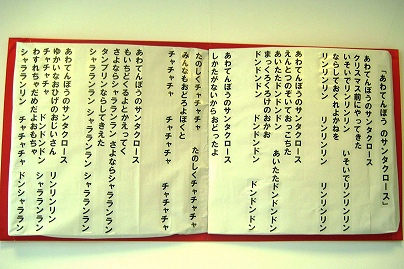 「あわてんぼう」のサンタクロース」
あわてんぼうのサンタクロース
クリスマス前にやってきた
いそいでリンリンリン　いそいでリンリンリン
ならしておくれよかねを
リンリンリン　リンリンリン　リンリンリン
あわてんぼうのサンタクロース
えんとつのぞいておっこちた
あいたたドンドンドン　あいたたドンドンドン
まっくろくろけのおかお
ドンドンドン　ドンドンドン　ドンドンドン
あわてんぼうのサンタクロース
しかたがないからおどったよ
たのしくチャチャチャ　たのしくチャチャチャ
みんなもおどろよぼくと
チャチャチャ　チャチャチャ　チャチャチャ
あわてんぼうのサンタクロース
もいちどくるよとかえってく
さよならシャラランラン　さよならシャラランラン
タンブリンならしてきえた
シャラランラン　シャラランラン　シャラランラン
あわてんぼうのサンタクロース
ゆかいなおひげのおじいさん
リンリンリン　チャチャチャ　ドンドンドン　シャラランラン
わすれちゃだめだよおもちゃ
シャラランリン　チャチャチャ　ドンシャラランラン